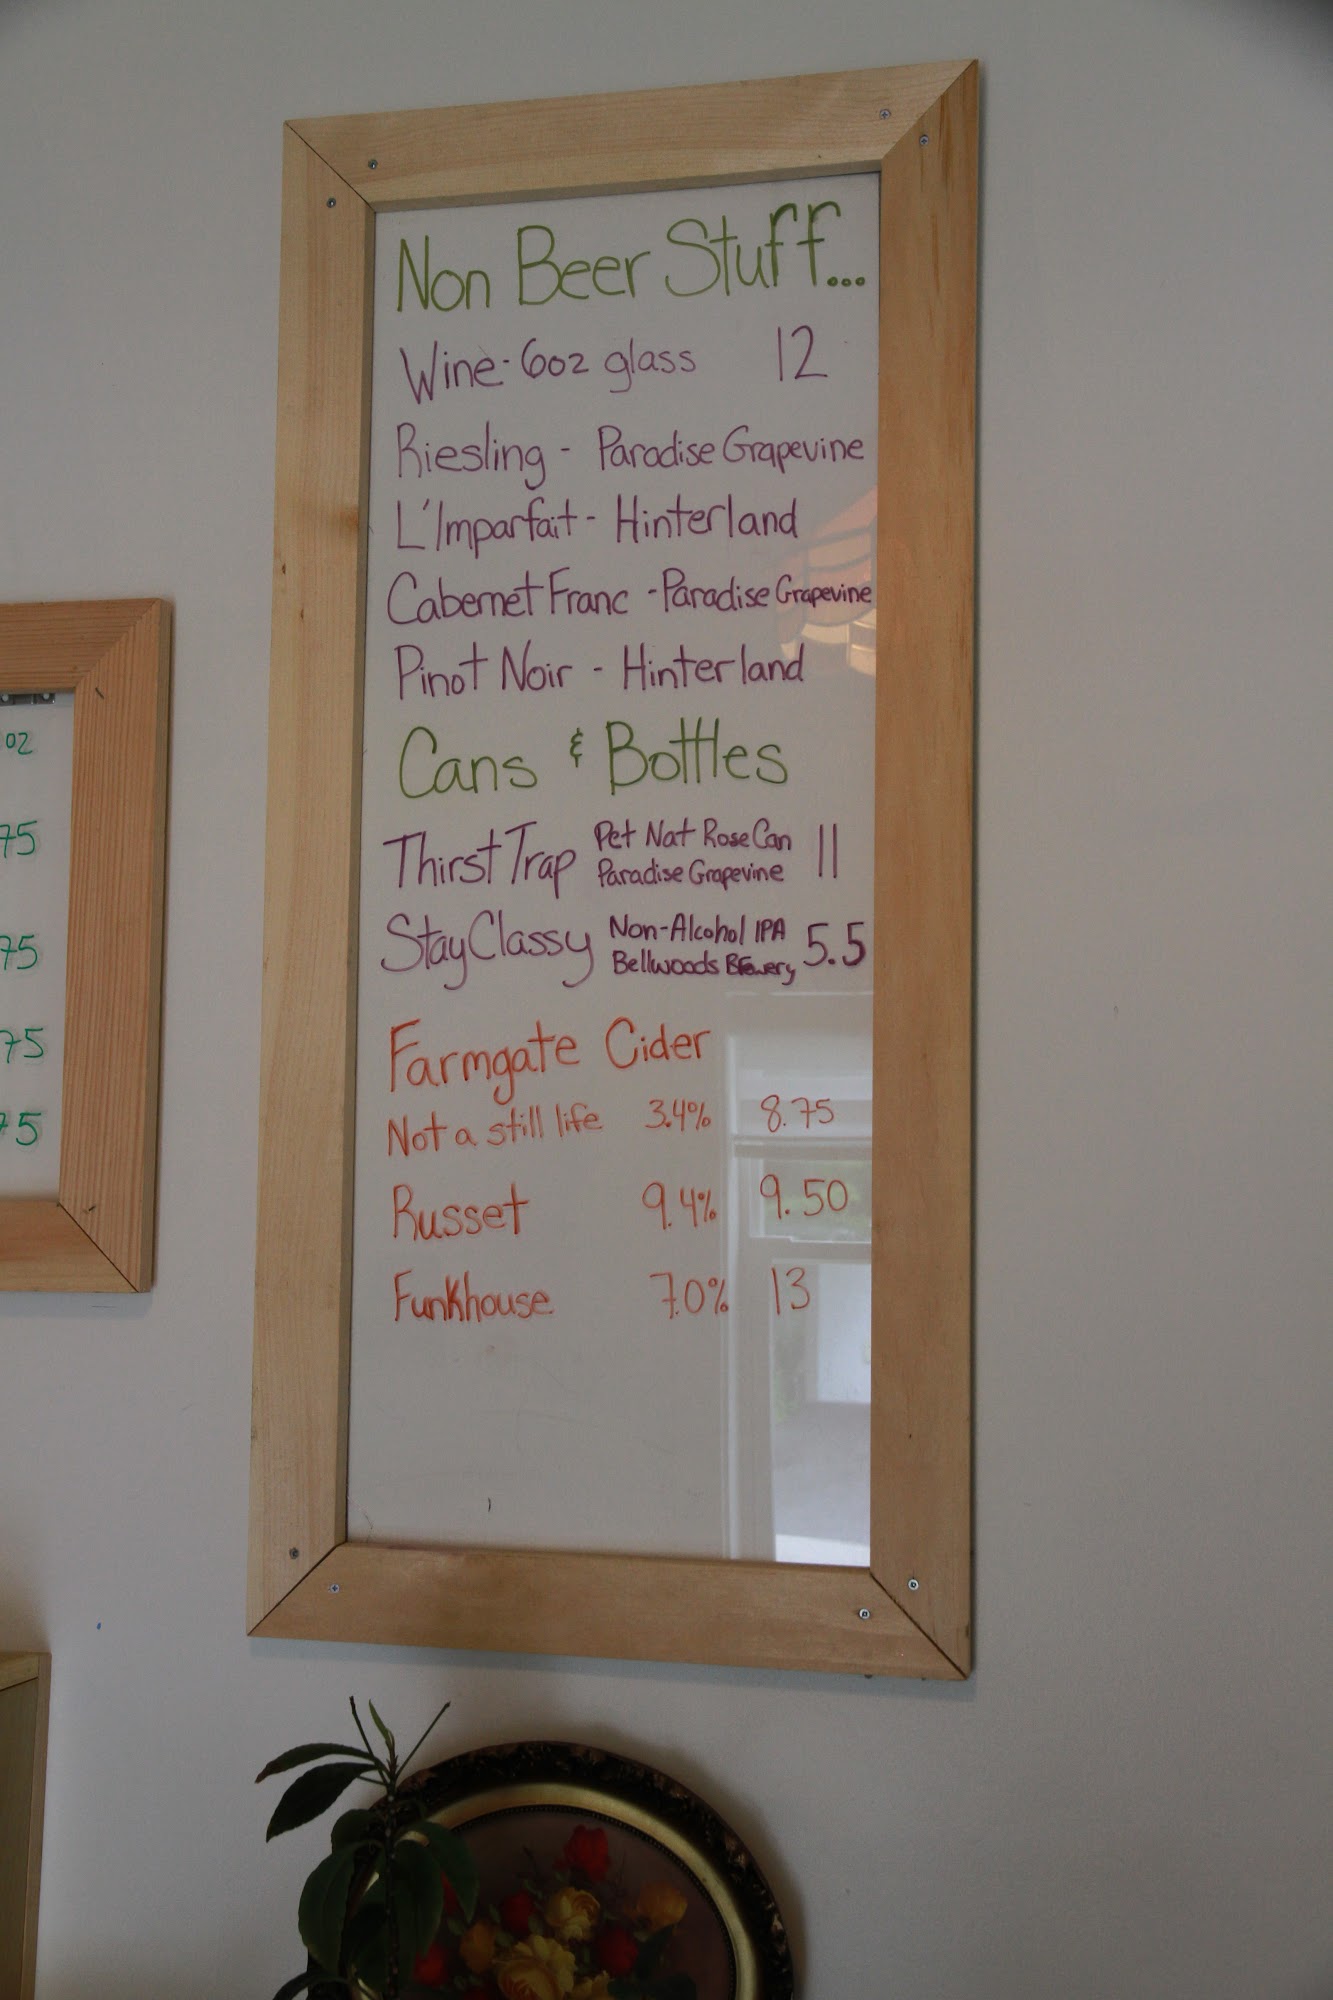 Non Beer Stuff...
Wine - 6oz glass 12
Riesling - Paradise Grapevine
L'Imparfait - Hinterland
Cabernet Franc - Paradise Grapevine
Pinot Noir - Hinterland
Cans & Bottles
Thirst Trap Pet Nat Rose Can 11
Paradise Grapevine
Stay Classy Non-Alcohol IPA 5.5
Bellwoods Brewery
Farmgate Cider
Not a still life 3.4% 8.75
Russet 9.4% 9.50
Funkhouse 7.0% 13
oz
75
75
75
75